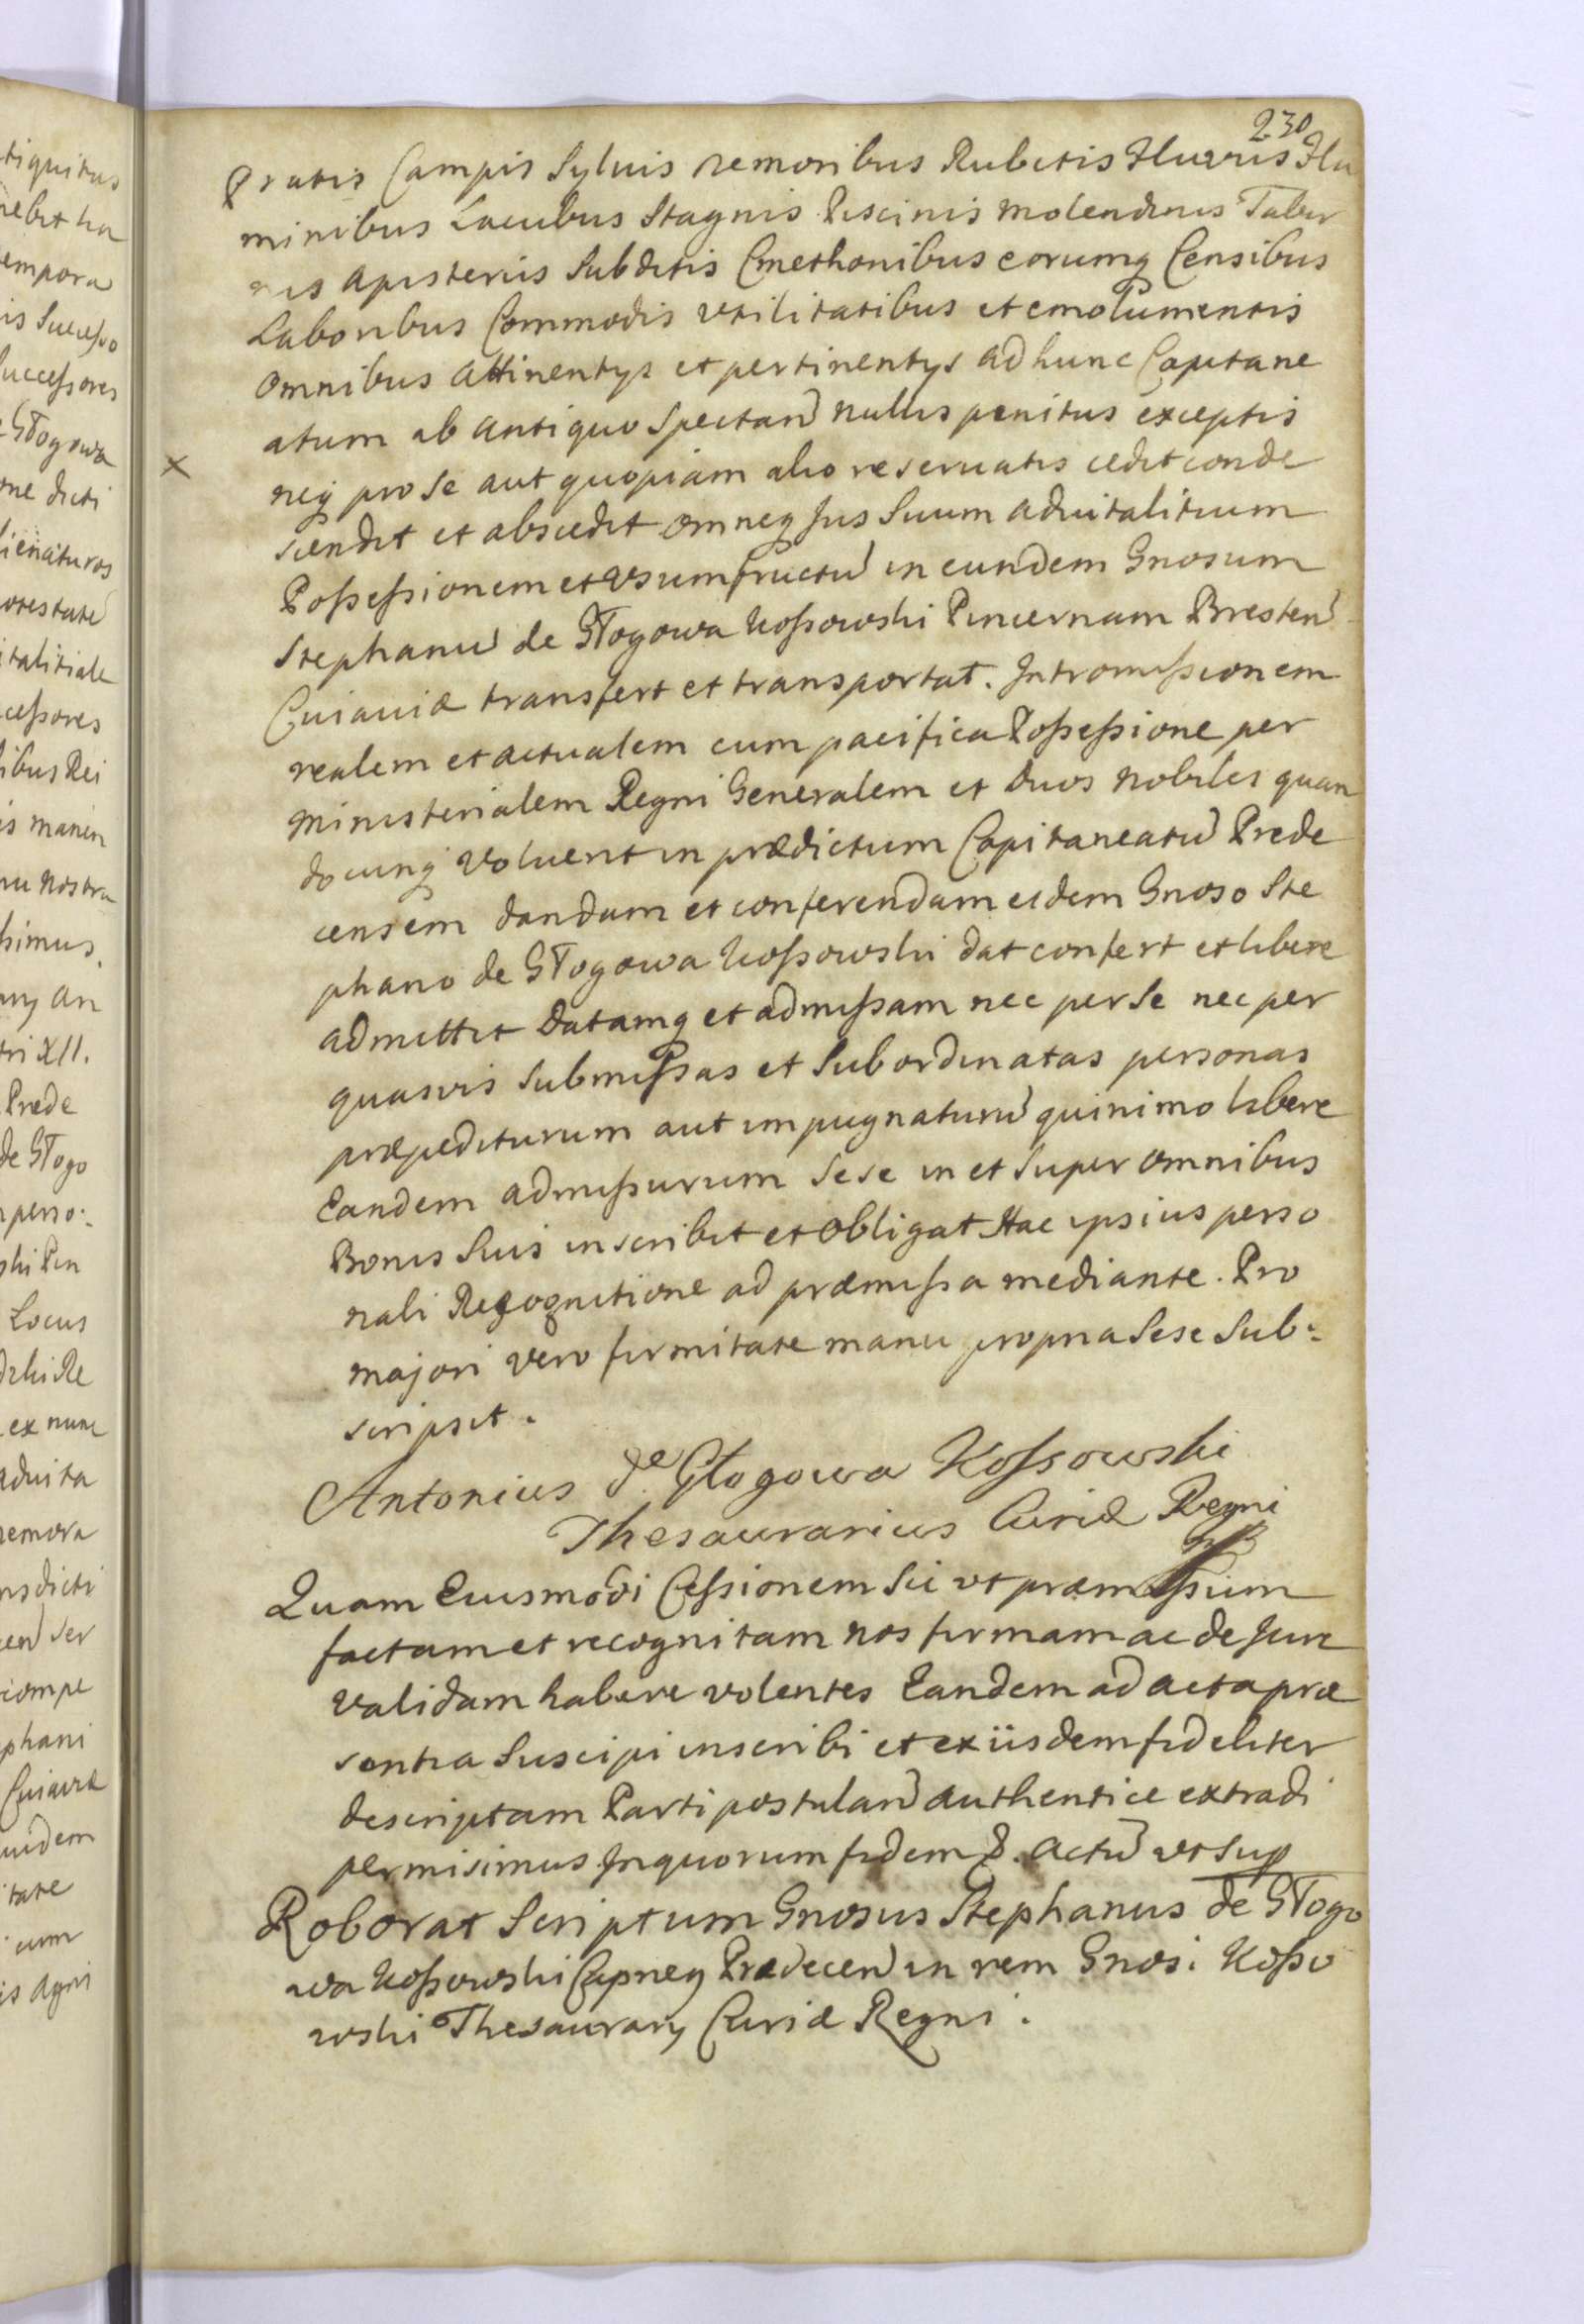 230
Pratis Campis Syluis nemoribus Rubetis Fluvris Flu
minibus Lacubus Stagnis Piscinis molendinis Taber
nis apisteriis Subditis Cmethonibus eorumq Censibus
Laboribus Commodis vtilitatibus et emolumentis
omnibus attinentys et pertinentys ad hunc Capitane
atum ab antiquo spectan nullis penitus exceptis
neq pro se aut quopiam alio reseruatis cedit conde
scendit et abscedit omneq Jus Suum aduitalitium
Possessionem et vsumfructu in eundem Gnosum
Stephanu de Głogowa Kossowski Pincernam Bresten
Cuiauiæ transfert et transportat. Intromissionem
realem et actualem cum pacifica Possessione per
ministerialem Regni Generalem et duos nobiles quan
docunq voluerit in prædictum Capitaneatu Prede
censem dandam et conferendam eidem Gnoso Ste
phano de Głogowa Kossowski dat confert et libere
admittit datamq et admissam nec per se nec per
quasvis submissas et Subordinatas personas
præpediturum aut impugnaturu quinimo libere
Eandem admissurum sese in et super omnibus
Bonis Suis inscribit et obligat Hac ipsius perso
nali Recognitione ad præmissa mediante. Pro
majori vero firmitate manu propria Sese Sub:
scripsit.
Antonius de Głogowa Kossowski
Thesaurarius Curiæ Regni
Quam Eiusmodi Cessionem Sic vt præmissum
factam et recognitam nos firmam ac de Jure
validam habere volentes Eandem ad acta præ
sentia Suscipi inscribi et ex iisdem fideliter
descriptam Parti postulan authentice extradi
permisimus In quorum fidem &. actu vt sup
Roborat Scriptum Gnosus Stephanus de Głogo
wa Kossowski Capneq Prædecen in rem Gnosi Kosso
wski Thesaurary Curiæ Regni.
tiquitus
empora
is Successo
Successores
Głogowa
one dicti
lienaturos
otestate
italitiale
cessores
libus Rei
is manen
nu nostra
himus.
ny an
tri XII.
Prede
de Głogo
perso:
ski Pin
Locus
ex nunc
aduita
remora
nsdicti
cen ser
compe
phani
Cuiaviæ
uidem
tate
cum
is agri